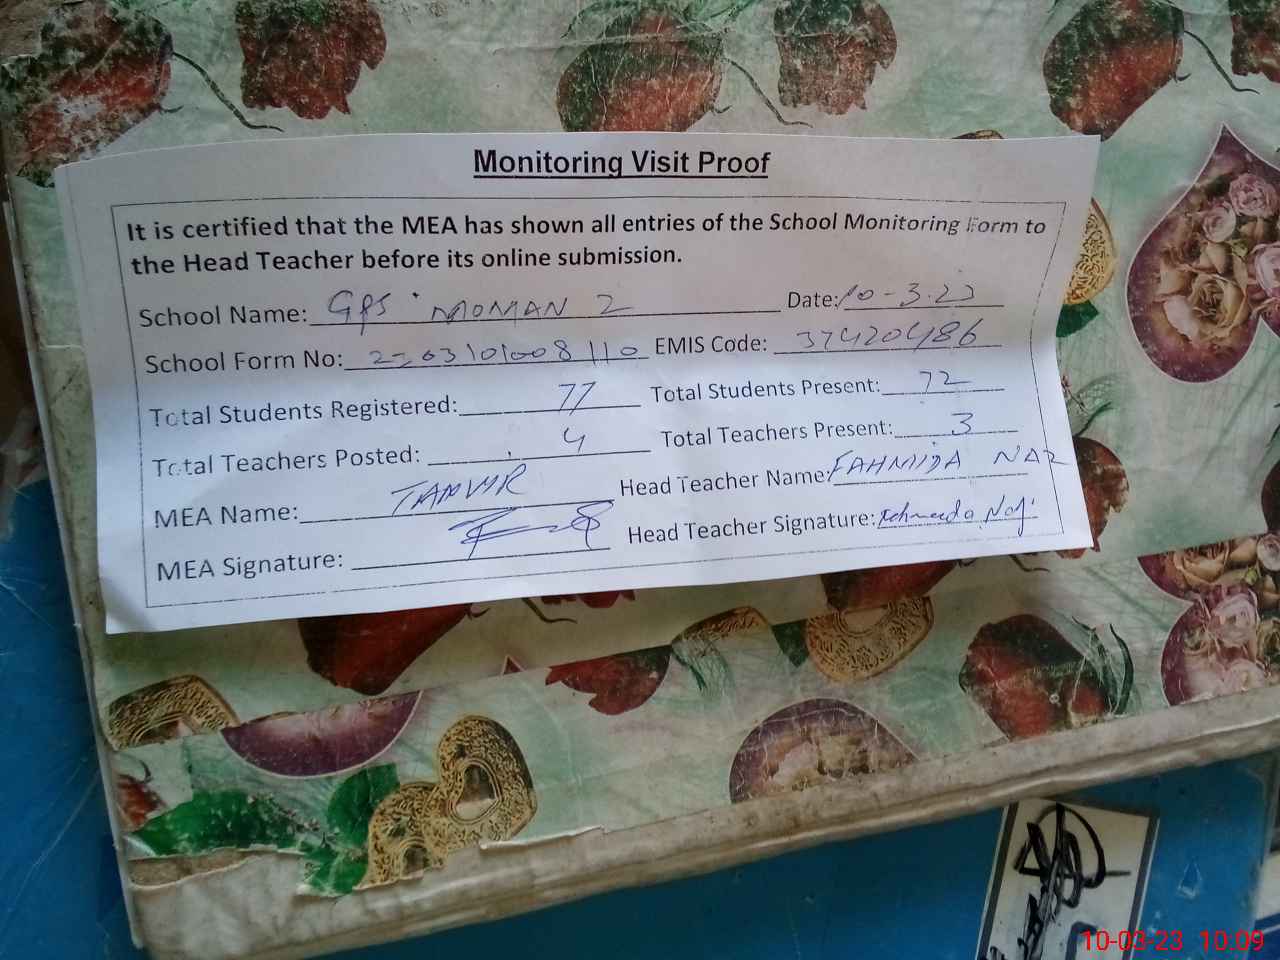 Monitoring Visit Proof
It is certified that the MEA has shown all entries of the School Monitoring Form to
the Head Teacher before its online submission.
School Name: GPS MOMAN 2 Date: 10-3-23
School Form No: 2303101008110 EMIS Code: 37420486
Total Students Registered: 77 Total Students Present: 72
Total Teachers Posted: 4 Total Teachers Present: 3
MEA Name: Head Teacher Name: FAHMIDA NAZ
MEA Signature: Head Teacher Signature:
10-03-23 10:09